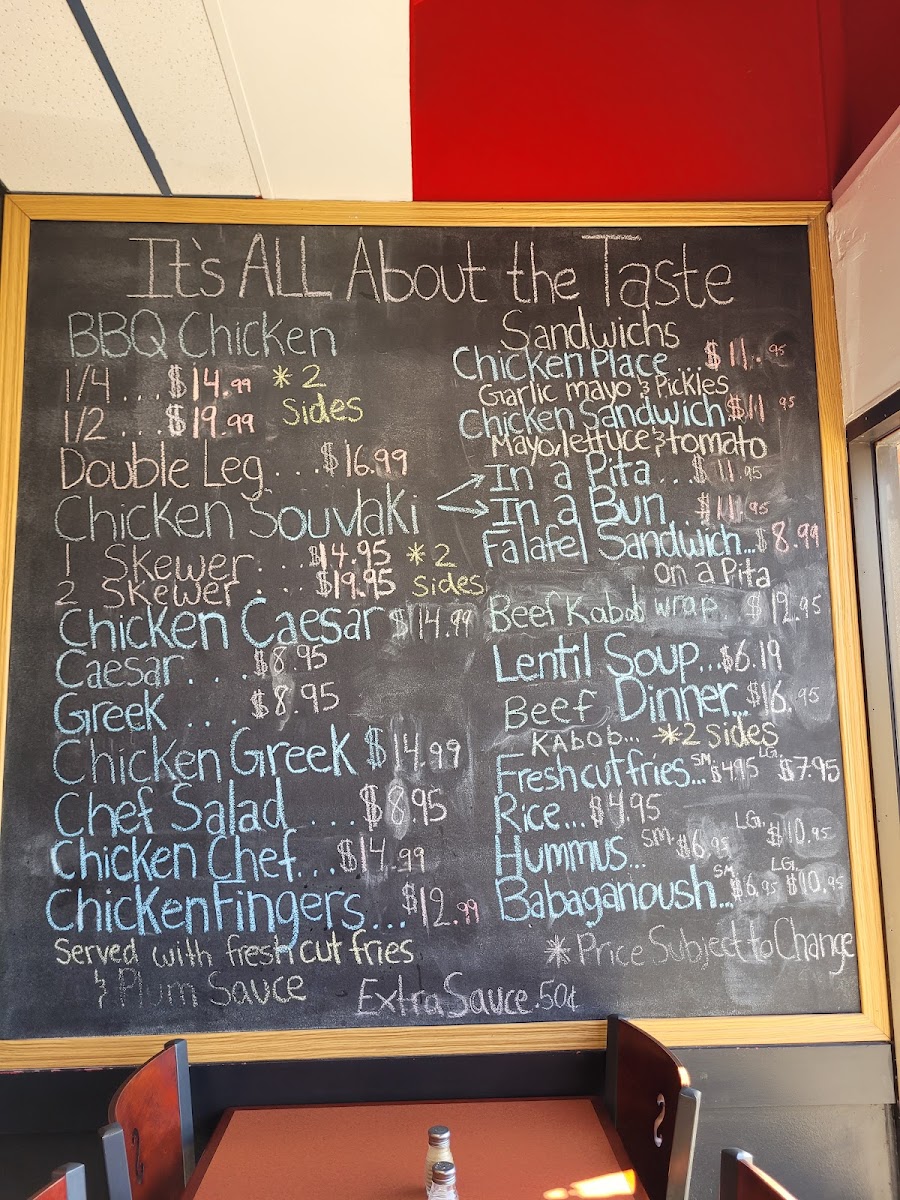 It's ALL About the Taste
BBQ Chicken
1/4 ... $14.99 * 2
1/2 ... $19.99 Sides
Double Leg ... $16.99
Chicken Souvlaki
1 Skewer .... $14.95 * 2
2 Skewer .... $19.95 sides
Chicken Caesar $14.99
Caesar .... $8.95
Greek .... $8.95
Chicken Greek $14.99
Chef Salad .... $8.95
Chicken Chef... $14.99
Chicken Fingers... $12.99
Served with fresh cut fries
& Plum Sauce
Sandwichs
Chicken Place ... $11.95
Garlic mayo & Pickles
Chicken Sandwich $11 95
Mayo, lettuce & tomato
In a Pita... $11.95
In a Bun $11.95
Falafel Sandwich... $8.99
on a Pita
Beef Kabob wrap. $12.95
Lentil Soup... $6.19
Beef Dinner... $16.95
KABOB... *2 sides
Fresh cut fries... SM. $4.95 LG. $7.95
Rice... $4.95
Hummus... SM. $6.95 LG. $10.95
Babaganoush... SM. $6.95 LG. $10.95
* Price Subject to Change
Extra Sauce .50¢